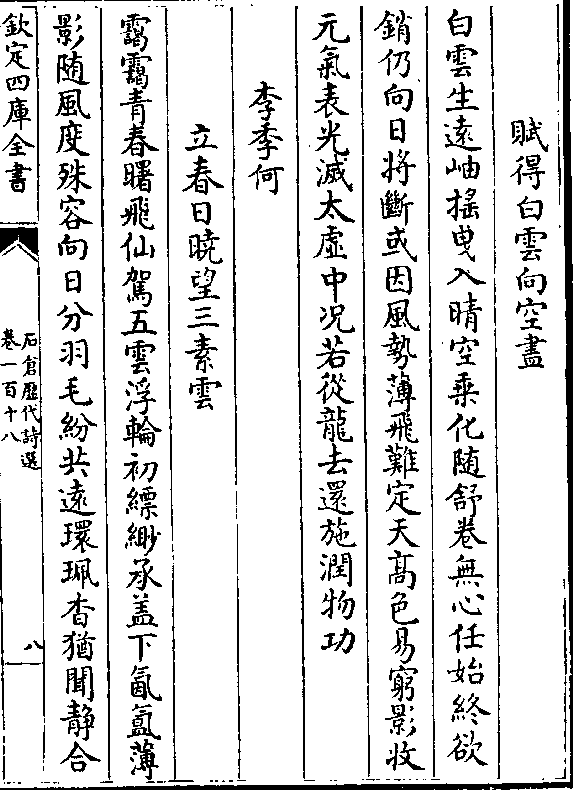 賦得白雲向空盡
白雲生遠岫搖曳入晴空乗化随舒卷無心任始終欲
銷仍向日將斷或因風勢薄飛難定天髙色易窮影收
元氣表光滅太虛中况若從龍去還施潤物功
李季何
立春日曉望三素雲
靄靄青春曙飛仙駕五雲浮輪初縹緲承盖下氤氲薄
影随風度殊容向日分羽毛紛共遠環珮杳猶聞静合
欽定四庫全書
石倉歷代詩選
卷一百十八
八